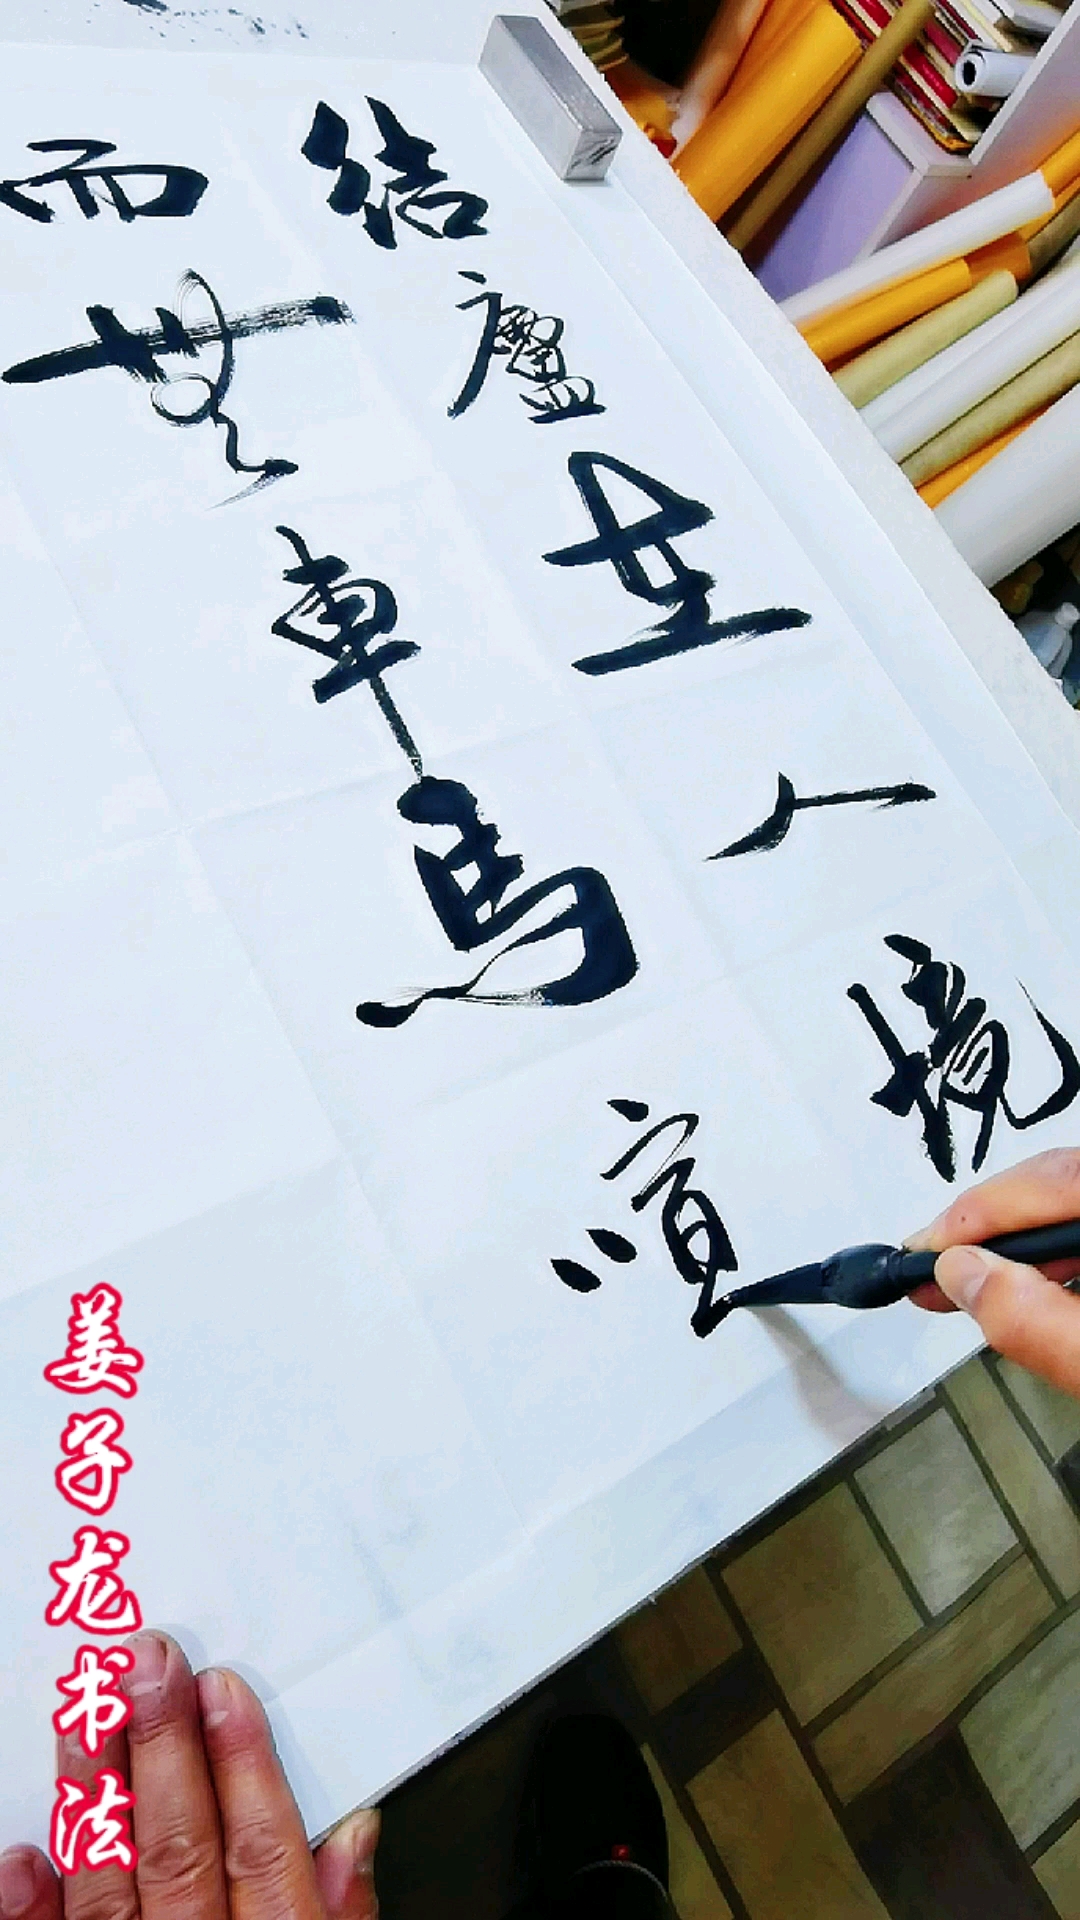 结廬在人境
而無車馬喧
姜子龙书法